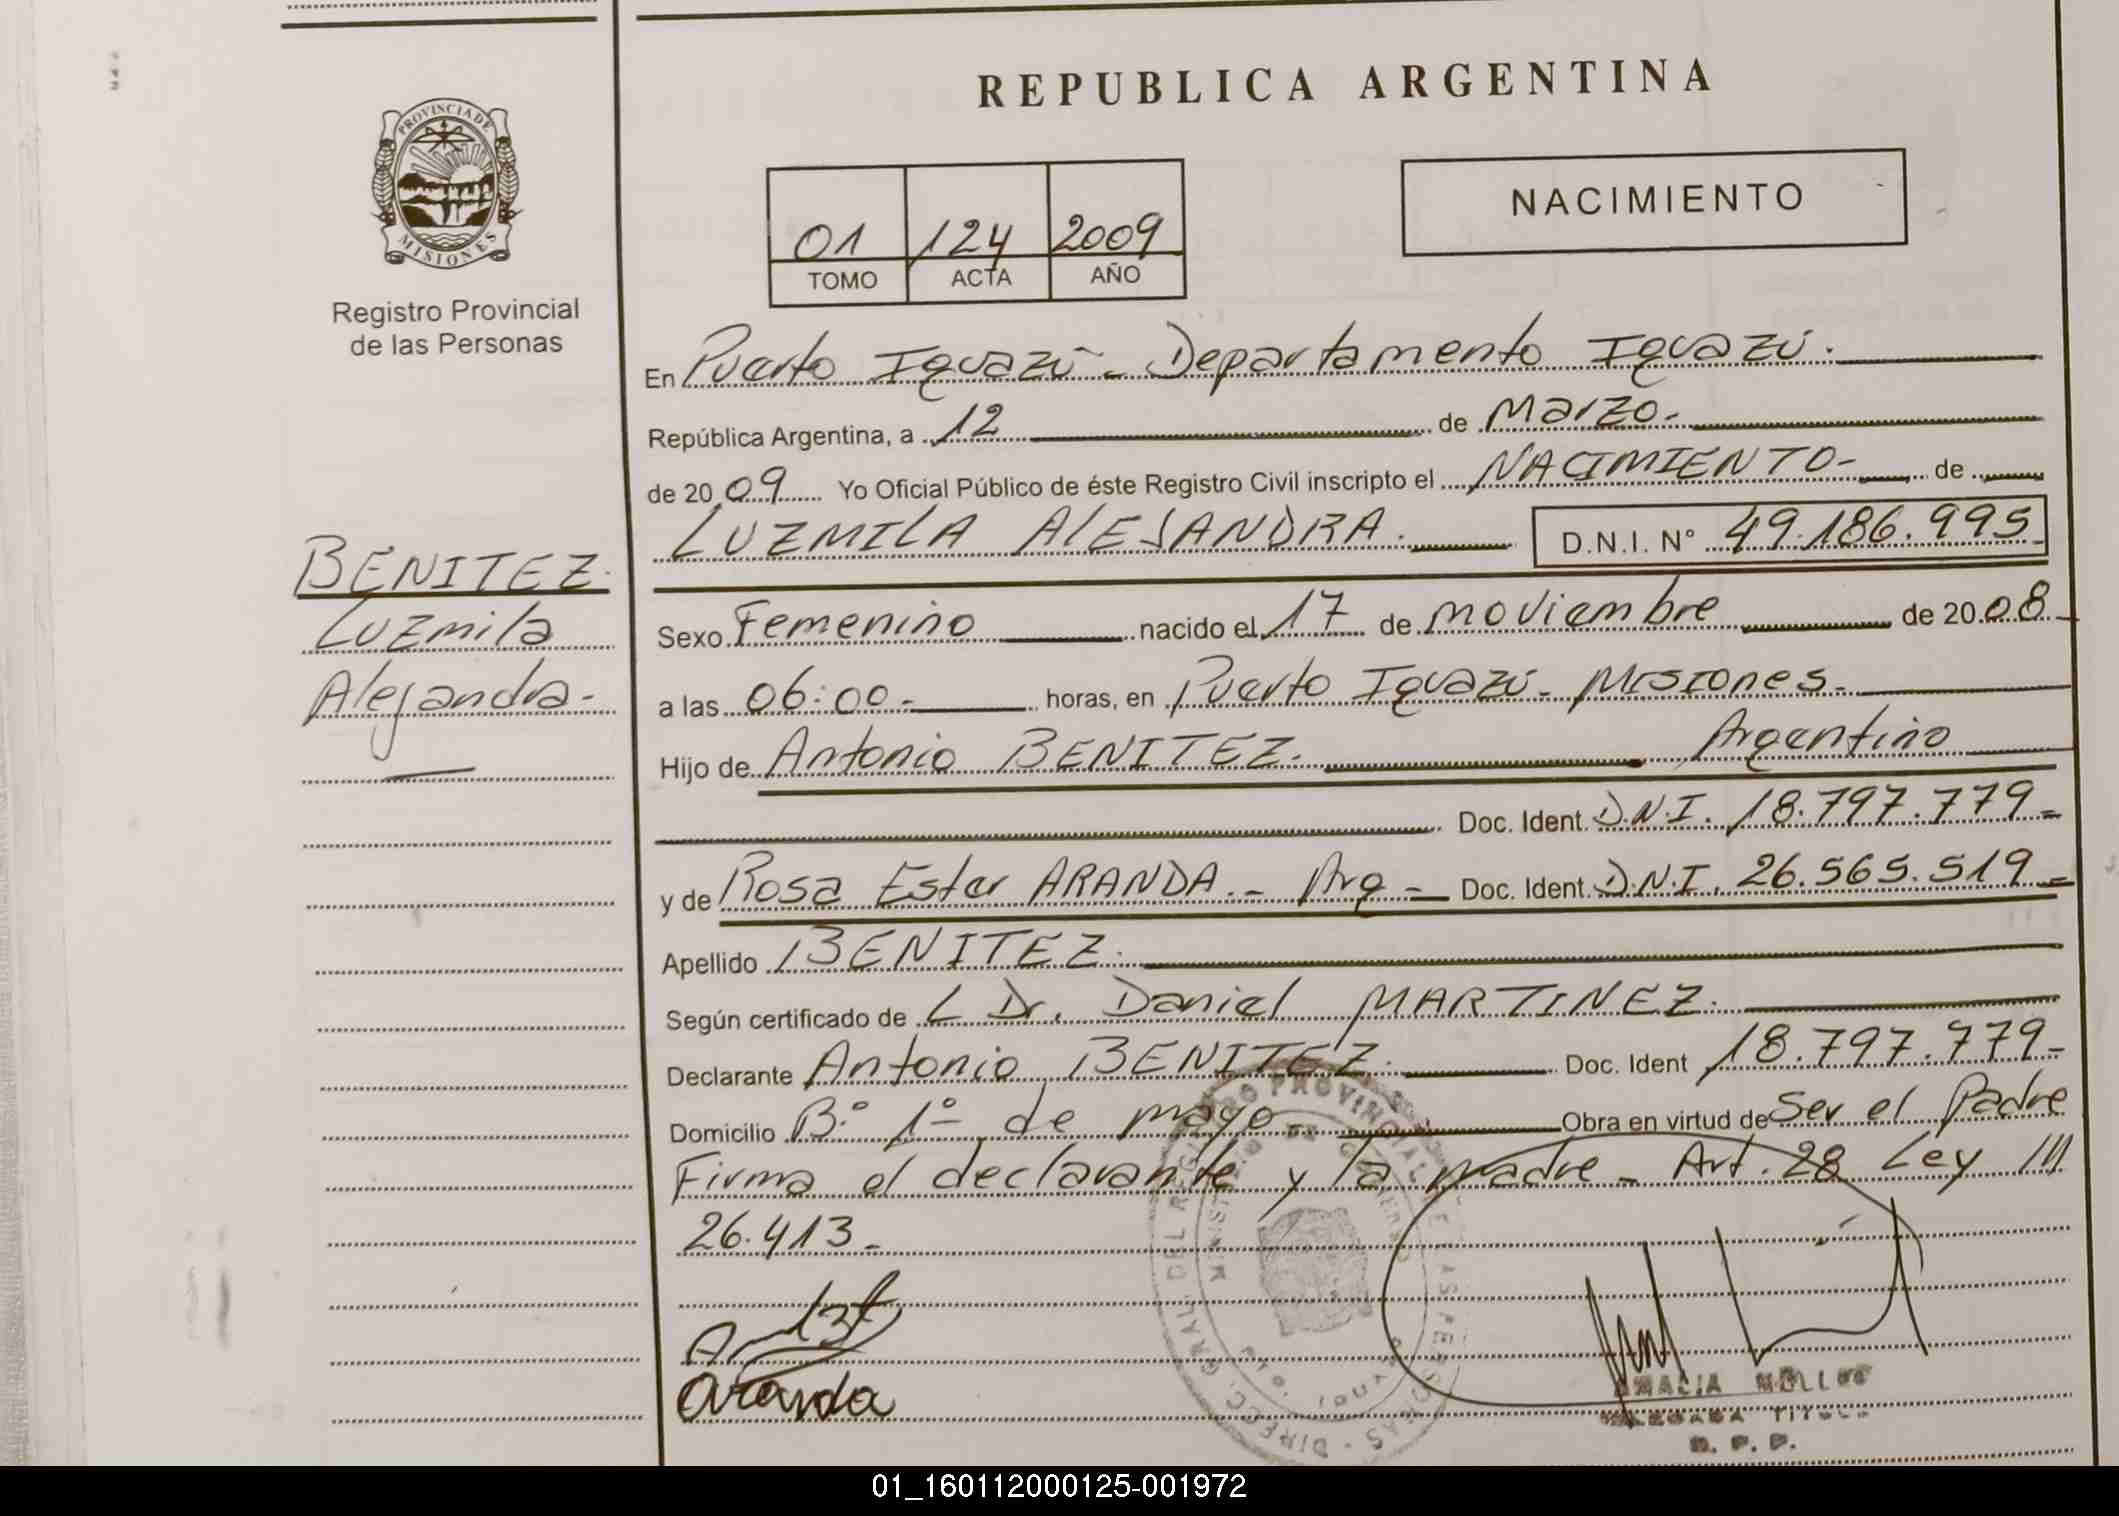 REPUBLICA ARGENTINA
PROVINCIA DE
MISIONES
Registro Provincial
de las Personas
01 124 2009
TOMO ACTA AÑO
NACIMIENTO
En Puerto Iguazú - Departamento Iguazú.
República Argentina, a 12 de Marzo-
de 2009 Yo Oficial Público de éste Registro Civil inscripto el NACIMIENTO- de
LUZMILA ALEJANDRA. D.N.I. N° 49.186.995
BENITEZ.
Luzmila
Alejandra-
Sexo Femenino nacido el 17 de noviembre de 2008
a las 06:00- horas, en Puerto Iguazú- Misiones-
Hijo de Antonio BENITEZ. Argentino
Doc. Ident. D.N.I. 18.797.779-
y de Rosa Ester ARANDA.- Arg - Doc. Ident. D.N.I. 26.565.519-
Apellido BENITEZ.
Según certificado de L Dr. Daniel MARTINEZ.
Declarante Antonio BENITEZ. Doc. Ident 18.797.779-
Domicilio B° 1° de mayo- Obra en virtud de Ser el Padre
Firma el declarante y la madre - Art. 28 Ley
26.413-
Aranda
R. P. P.
01_160112000125-001972